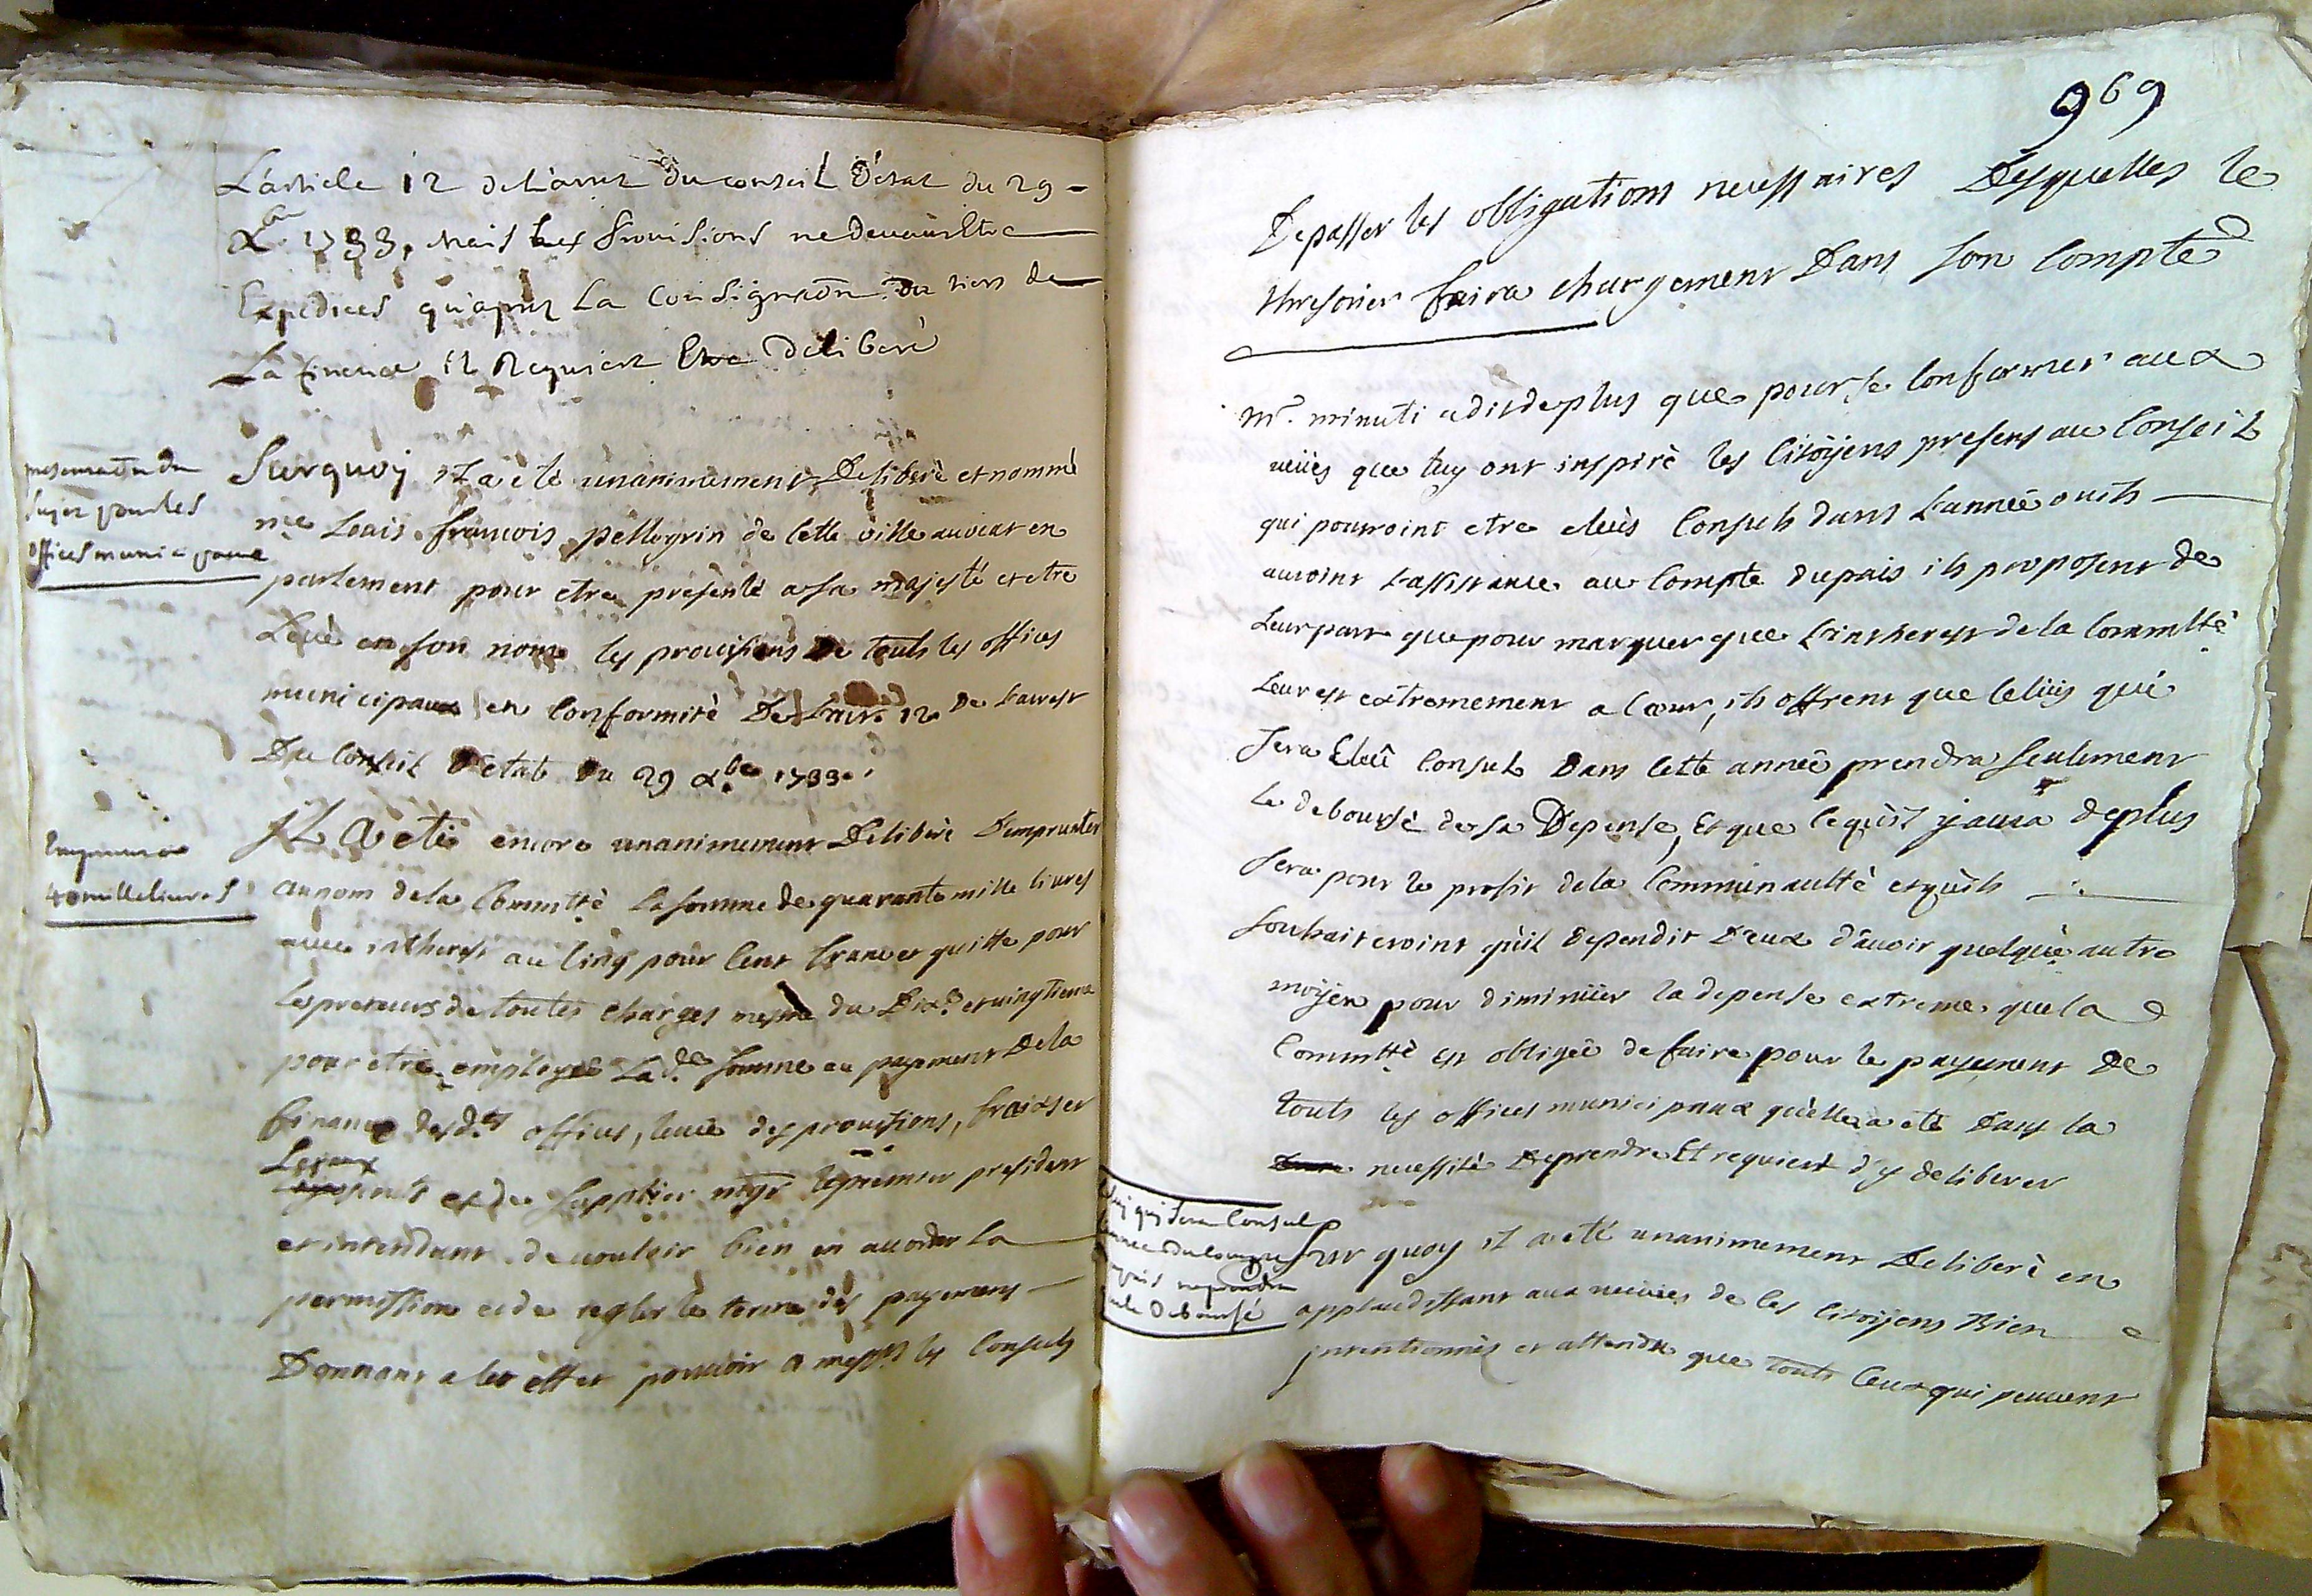 L'article 12 de L'arrest du conseil D'etat du 29
Xbre 1733, mais Les provisions ne devant Etre
Expediees qu'apres La Consignaõn du tiers de
La finance il Requiert Etre deliberé
presentaõn du
sujet pour les
offices municipaux
Surquoy il a eté unanimement Deliberé et nommé
me Louis françois pellegrin de cette ville avocat en
parlement pour etre presenté a sa majesté et etre
Levé en son nom les provisions De touts les offices
municipaux en conformité De L'art. 12 De L'arrest
Du Conseil D'etat Du 29 Xbre 1733.
Emprunt de
40 mille livres
Il a eté encore unanimement Deliberé D'emprunter
au nom de la Commtté la somme de quarante mille livres
avec intherest au cinq pour cent franc et quitte pour
les preteurs de toutes charges mesme du Dix.e et vingtieme
pour etre employée La d.e somme en payement De la
finance des d.ts offices, levée des provisions, fraix et
Loyaux
couts et de supplier mgr le premier president
et intendant de vouloir bien en accorder la
permission et de regler le terme des payemens
Donnant a cet effet pouvoir a mess.rs les Consuls
969
De passer les obligations necessaires Desquelles le
thresorier faira chargement Dans son Compte
Mr. minuti a dit de plus que pour se conformer aux
veües que luy ont inspiré les Citoÿens presens au Conseil
qui pourroint etre eleüs Consuls dans L'année ou ils
auroint L'assistance au Compte du païs ils proposent de
Leur part que pour marquer que L'intherest de la Commtté
Leur est extremement a Cœur, ils offrent que celuy qui
sera Eleû Consul Dans cette année prendra seulement
le deboursé de sa Depense, Et que ce qu'il y aura de plus
sera pour le profit de la Communautté et qu'ils
souhaiteroint qu'il Dependit D'eux d'avoir quelque autre
moÿen pour diminüer la depense extreme que la
Commtté est obligée de faire pour le payement De
touts les offices municipaux qu'elle a eté Dans la
necessité De prendre Et requiert d'y deliberer
Celuy qui sera Consul
L'année du Compte
du païs ne prendra
que le Deboursé
Sur quoy il a eté unanimement Deliberé en
applaudissant aux veües de ces Citoÿens Bien
intentionnés et attendu que touts Ceux qui peuvent